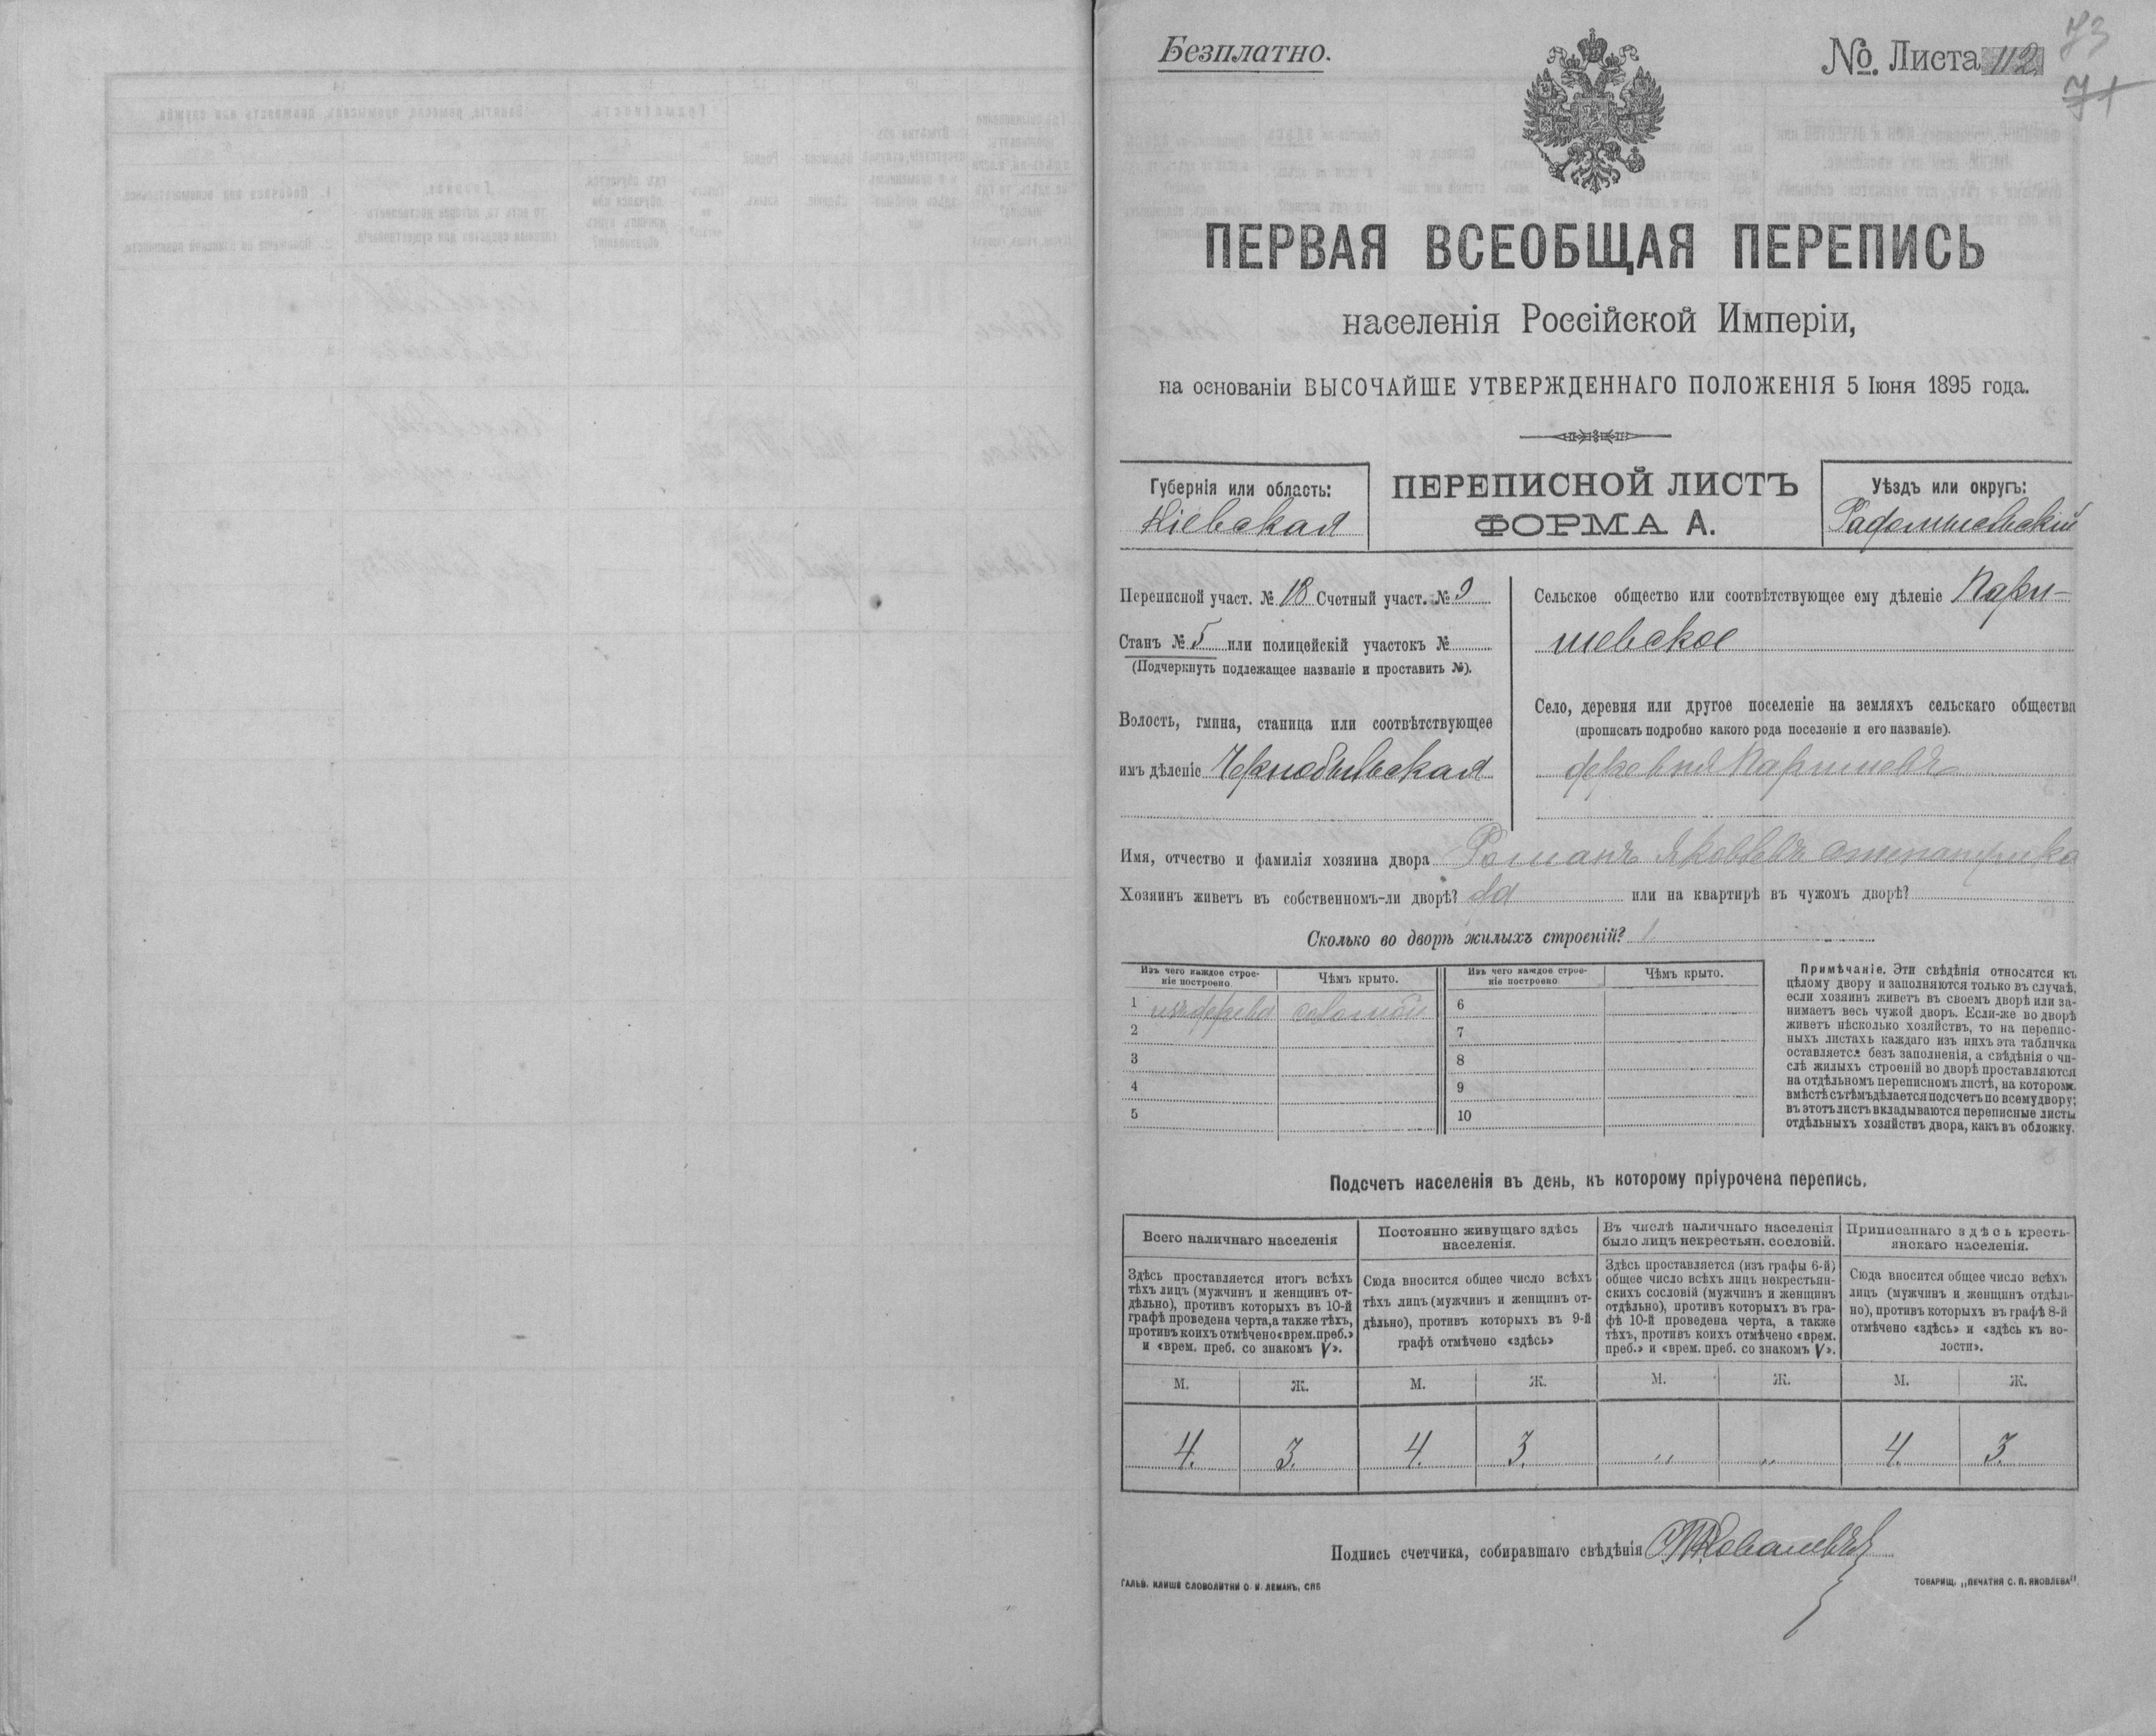 Безплатно.
№. Листа 112
73
71
ПЕРВАЯ ВСЕОБЩАЯ ПЕРЕПИСЬ
населенія Россійской Имперіи,
на основаніи ВЫСОЧАЙШЕ УТВЕРЖДЕННАГО ПОЛОЖЕНІЯ 5 Іюня 1895 года.
Губернія или область:
Кіевская
ПЕРЕПИСНОЙ ЛИСТЪ
ФОРМА А.
Уѣздъ или округъ:
Радомысльскій
Переписной участ. № 18 Счетный участ. № 9
Станъ № 5 или полицейскій участокъ №
(Подчеркнуть подлежащее названіе и проставить №).
Волость, гмина, станица или соотвѣтствующее
имъ дѣленіе Чернобыльская
Сельское общество или соотвѣтствующее ему дѣленіе Пари-
шевское
Село, деревня или другое поселеніе на земляхъ сельскаго общества
(прописать подробно какого рода поселеніе и его названіе).
деревня Паришевъ
Имя, отчество и фамилія хозяина двора Романъ Яковлевъ
Хозяинъ живетъ въ собственномъ-ли дворѣ? да или на квартирѣ въ чужомъ дворѣ?
Сколько во дворѣ жилыхъ строеній? 1
Изъ чего каждое строе-
ніе построено.
Чѣмъ крыто.
Изъ чего каждое строе-
ніе построено
Чѣмъ крыто.
1 изъ дерева соломой
2
3
4
5
6
7
8
9
10
Примѣчаніе. Эти свѣдѣнія относятся къ
цѣлому двору и заполняются только въ случаѣ,
если хозяинъ живетъ въ своемъ дворѣ или за-
нимаетъ весь чужой дворъ. Если-же во дворѣ
живетъ нѣсколько хозяйствъ, то на перепис-
ныхъ листахъ каждаго изъ нихъ эта табличка
оставляется безъ заполненія, а свѣдѣнія о чи-
слѣ жилыхъ строеній во дворѣ проставляются
на отдѣльномъ переписномъ листѣ, на которомъ
вмѣстѣ съ тѣмъ дѣлается подсчетъ по всему двору;
въ этотъ листъ вкладываются переписные листы
отдѣльныхъ хозяйствъ двора, какъ въ обложку.
Подсчетъ населенія въ день, къ которому пріурочена перепись.
Всего наличнаго населенія
Здѣсь проставляется итогъ всѣхъ
тѣхъ лицъ (мужчинъ и женщинъ от-
дѣльно), противъ которыхъ въ 10-й
графѣ проведена черта, а также тѣхъ,
противъ коихъ отмѣчено «врем. преб.»
и «врем. преб. со знакомъ V».
Постоянно живущаго здѣсь
населенія.
Сюда вносится общее число всѣхъ
тѣхъ лицъ (мужчинъ и женщинъ от-
дѣльно), противъ которыхъ въ 9-й
графѣ отмѣчено «здѣсь»
Въ числѣ наличнаго населенія
было лицъ некрестьян. сословій.
Здѣсь проставляется (изъ графы 6-й)
общее число всѣхъ лицъ некрестьян-
скихъ сословій (мужчинъ и женщинъ
отдѣльно), противъ которыхъ въ гра-
фѣ 10-й проведена черта, а также
тѣхъ, противъ коихъ отмѣчено «врем.
преб.» и «врем. преб. со знакомъ V».
Приписаннаго здѣсь кресть-
янскаго населенія.
Сюда вносится общее число всѣхъ
лицъ (мужчинъ и женщинъ отдѣль-
но), противъ которыхъ въ графѣ 8-й
отмѣчено «здѣсь» и «здѣсь къ во-
лости».
М. Ж. М. Ж. М. Ж. М. Ж.
4. 3. 4. 3. " " 4. 3.
Подпись счетчика, собиравшаго свѣдѣнія
ГАЛЬВ. КЛИШЕ СЛОВОЛИТНИ О. И. ЛЕМАНЪ, СПБ
ТОВАРИЩ. „ПЕЧАТНЯ С. П. ЯКОВЛЕВА".